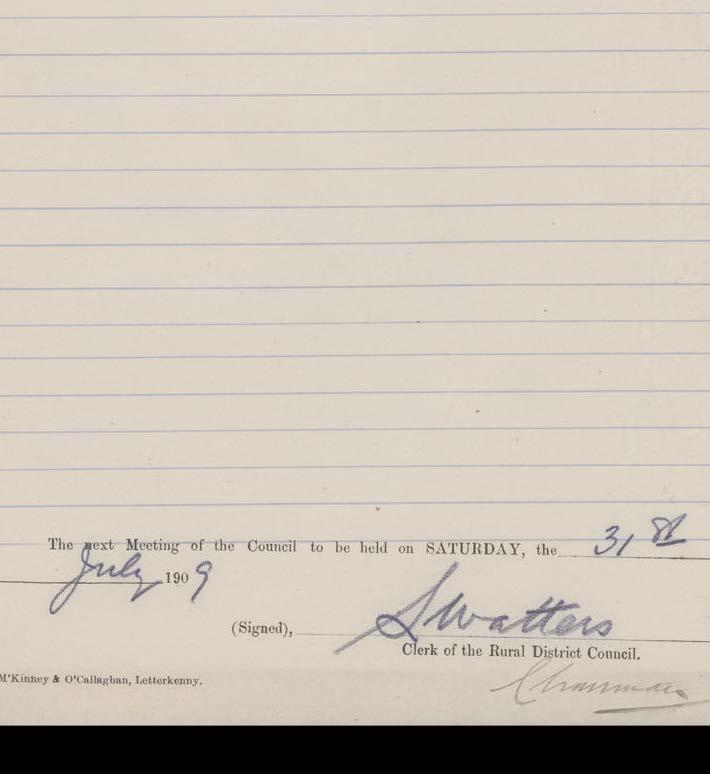 The next Meeting of the Council to be held on SATURDAY, the 31st
July 1909
(Signed), S Watters
Clerk of the Rural District Council.
M'Kinney & O'Callaghan, Letterkenny.
Chairman